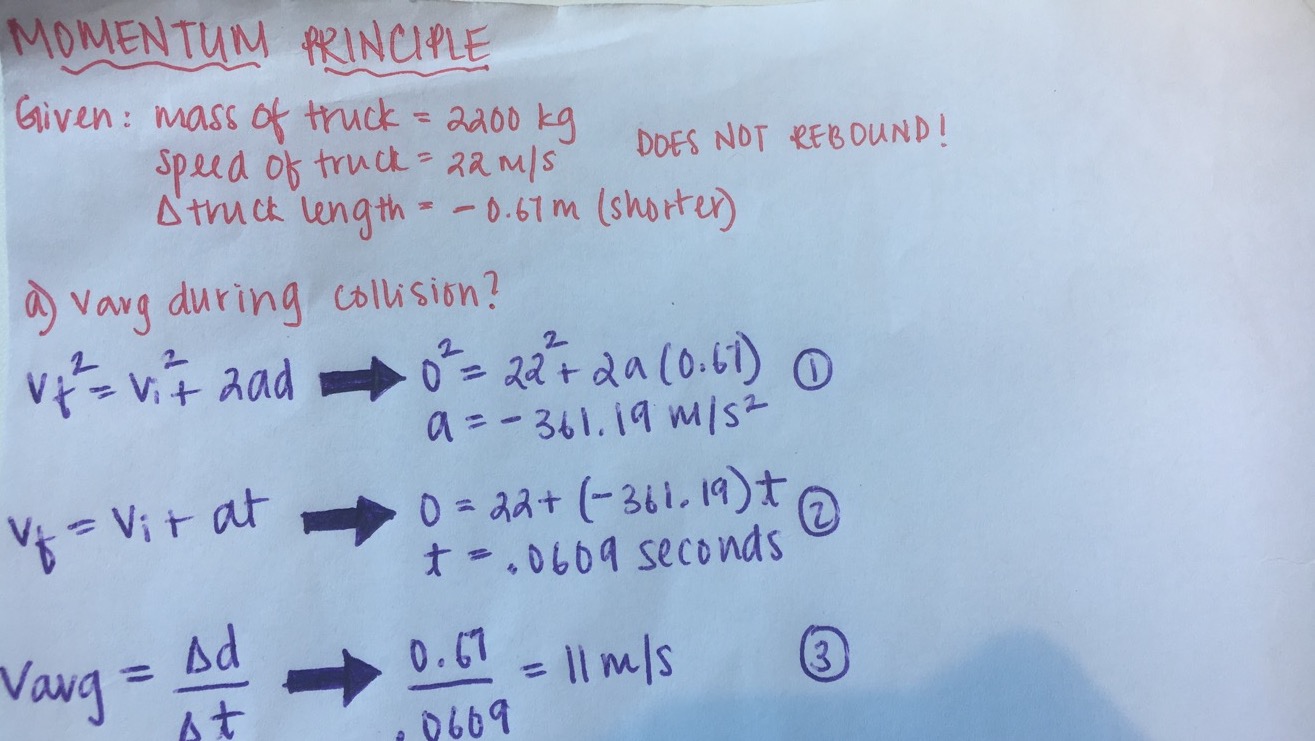 MOMENTUM PRINCIPLE
Given: mass of truck = 2200 kg
DOES NOT REBOUND!
speed of truck = 22 m/s
Δ truck length = -0.67m (shorter)
a) Vavg during collision?
Vf² = Vi² + 2ad → 0² = 22² + 2a(0.67) ①
a = -361.19 m/s²
Vf = Vi + at → 0 = 22 + (-361.19)t ②
t = .0609 seconds
Vavg = Δd/Δt → 0.67/.0609 = 11 m/s ③